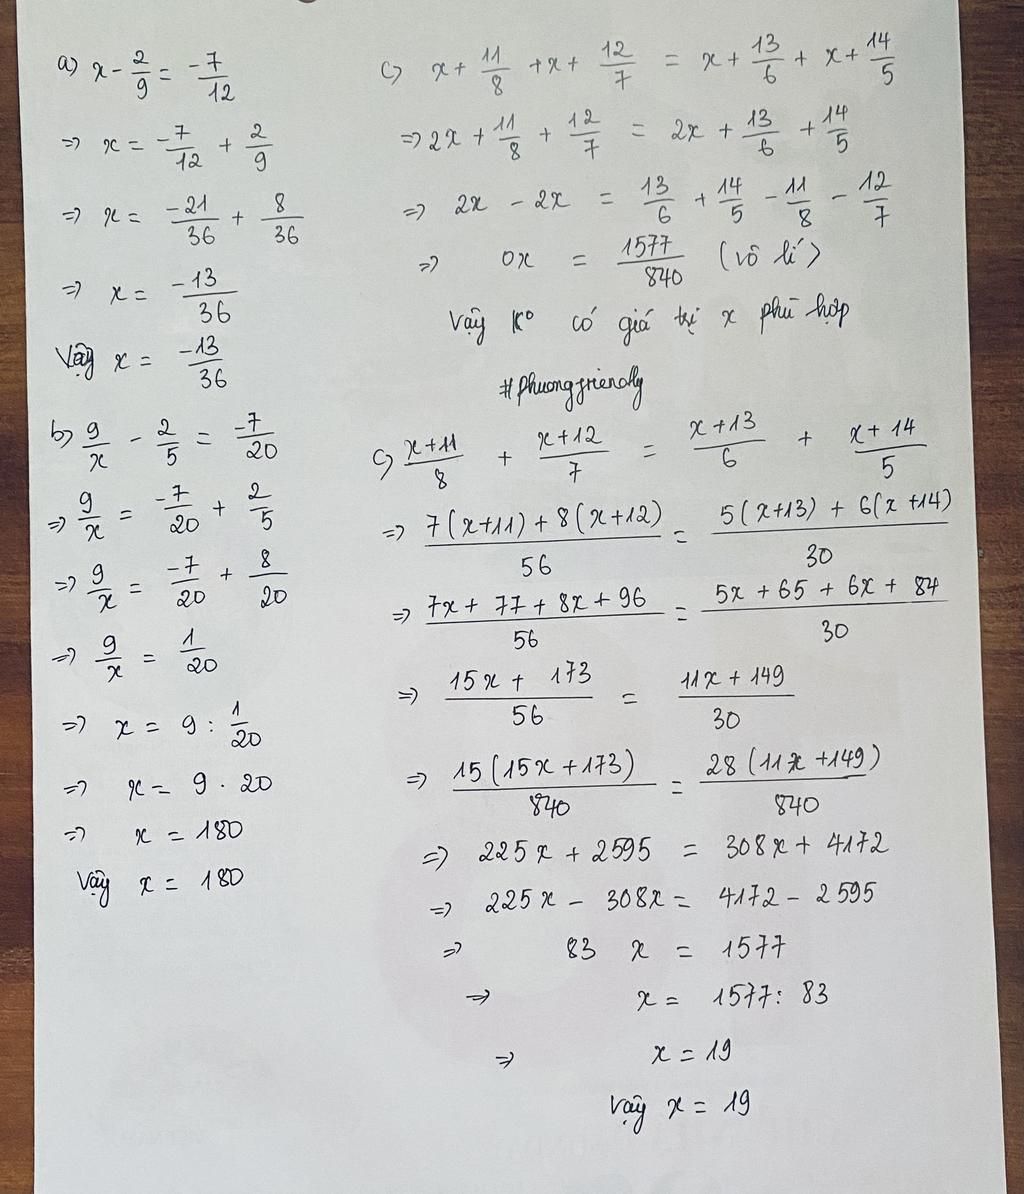 a) x - 2/9 = -7/12
=> x = -7/12 + 2/9
=> x = -21/36 + 8/36
=> x = -13/36
Vậy x = -13/36
b) 9/x - 2/5 = -7/20
=> 9/x = -7/20 + 2/5
=> 9/x = -7/20 + 8/20
=> 9/x = 1/20
=> x = 9 : 1/20
=> x = 9 . 20
=> x = 180
Vậy x = 180
c) x + 11/8 + x + 12/7 = x + 13/6 + x + 14/5
=> 2x + 11/8 + 12/7 = 2x + 13/6 + 14/5
=> 2x - 2x = 13/6 + 14/5 - 11/8 - 12/7
=> 0x = 1577/840 (vô lí)
Vậy K° có giá trị x phù hợp
#Phuongfriendly
c) (x+11)/8 + (x+12)/7 = (x+13)/6 + (x+14)/5
=> (7(x+11) + 8(x+12))/56 = (5(x+13) + 6(x+14))/30
=> (7x + 77 + 8x + 96)/56 = (5x + 65 + 6x + 84)/30
=> (15x + 173)/56 = (11x + 149)/30
=> 15(15x + 173)/840 = 28(11x + 149)/840
=> 225x + 2595 = 308x + 4172
=> 225x - 308x = 4172 - 2595
=> 83 x = 1577
=> x = 1577 : 83
=> x = 19
Vậy x = 19